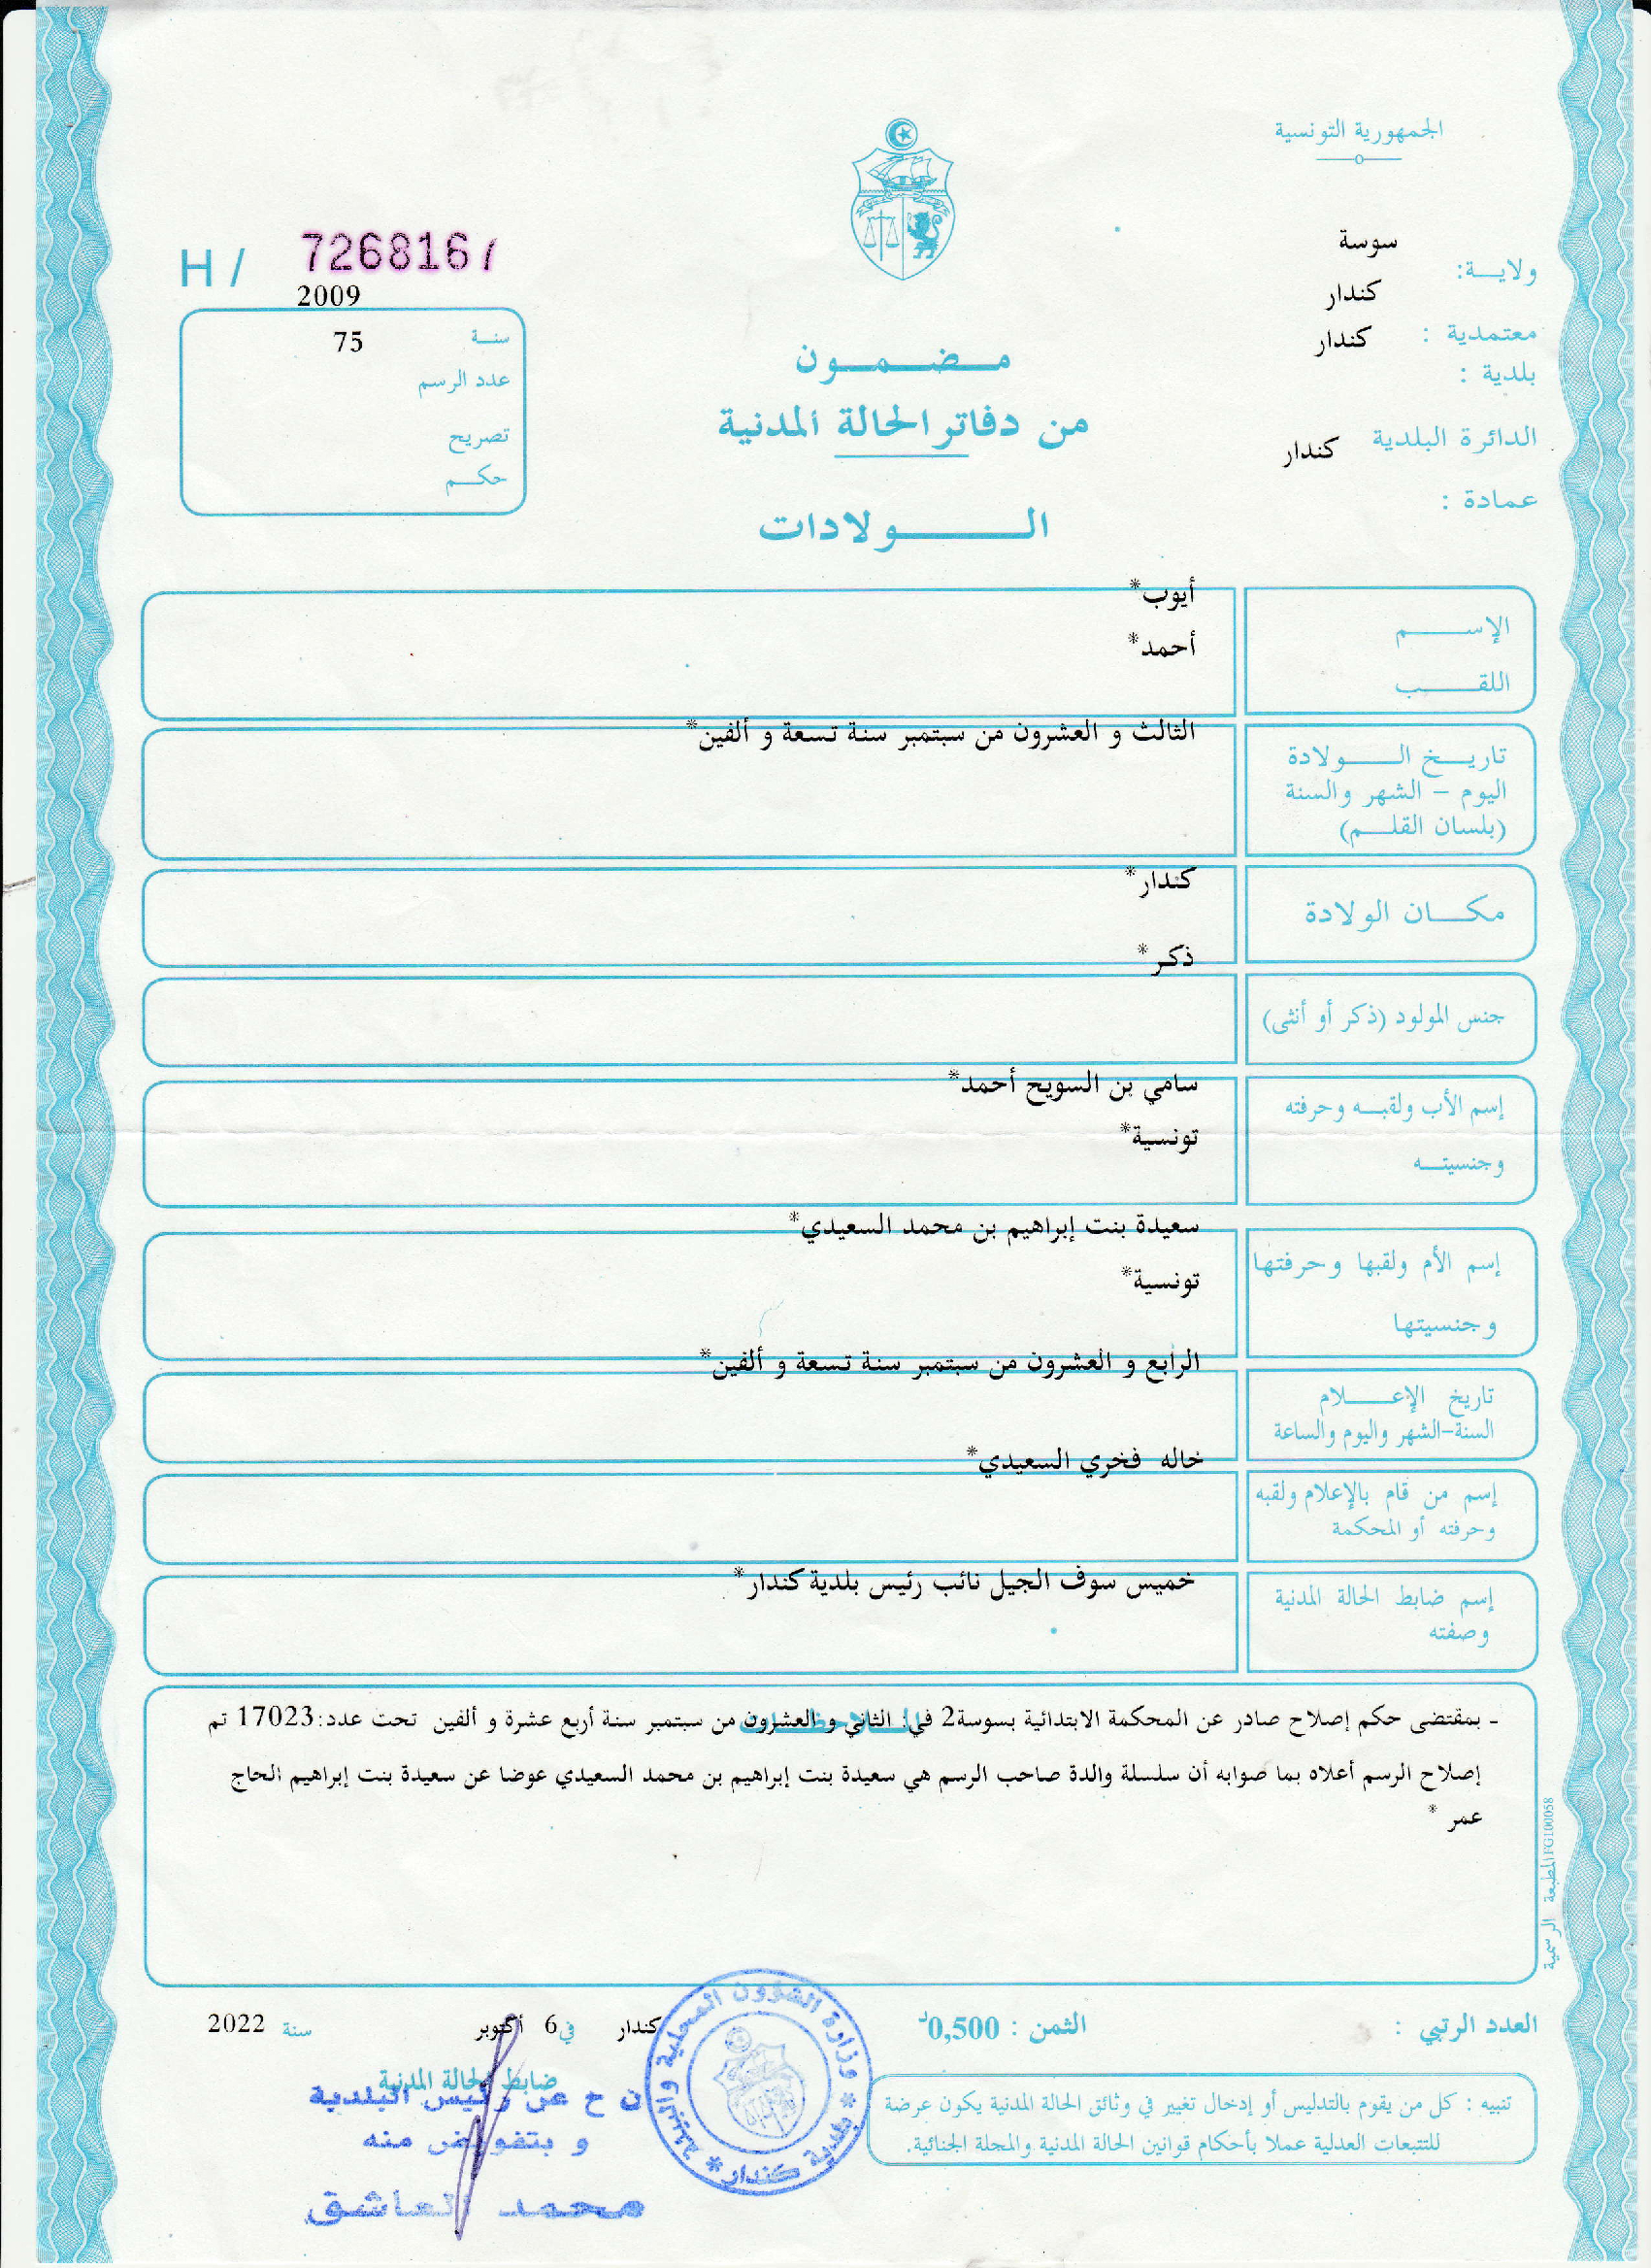 الجمهورية التونسية
ولايـــة: سوسة
معتمدية : كندار
بلدية : كندار
الدائرة البلدية كندار
عمادة :
H / 726816
2009
سنـــة 75
عدد الرسم
تصريح
حكـــم
مـــضـــمـــون
من دفاتر الحالة المدنية
الـــــولادات
الإســــــم أيوب*
اللقــــــب أحمد*
تاريـــخ الــــولادة الثالث و العشرون من سبتمبر سنة تسعة و ألفين*
اليوم – الشهر والسنة
(بلسان القلـــم)
مكـــان الولادة كندار*
جنس المولود (ذكر أو أنثى) ذكر*
إسم الأب ولقبـــه وحرفته سامي بن السويح أحمد*
وجنسيتـــه تونسية*
إسم الأم ولقبها وحرفتها سعيدة بنت إبراهيم بن محمد السعيدي*
وجنسيتها تونسية*
تاريخ الإعــــلام الرابع و العشرون من سبتمبر سنة تسعة و ألفين*
السنة-الشهر واليوم والساعة
إسم من قام بالإعلام ولقبه خاله فخري السعيدي*
وحرفته أو المحكمة
إسم ضابط الحالة المدنية خميس سوف الجيل نائب رئيس بلدية كندار*
وصفته
- بمقتضى حكم إصلاح صادر عن المحكمة الابتدائية بسوسة2 في: الثاني و العشرون من سبتمبر سنة أربع عشرة و ألفين تحت عدد:17023 تم
إصلاح الرسم أعلاه بما صوابه أن سلسلة والدة صاحب الرسم هي سعيدة بنت إبراهيم بن محمد السعيدي عوضا عن سعيدة بنت إبراهيم الحاج
عمر *
المطبعة الرسمية FG100058
العدد الرتبي :
الثمن : 0,500د
كندار في 6 أكتوبر سنة 2022
ضابط الحالة المدنية
ن ح عن رئيس البلدية
و بتفويض منه
محمد العاشق
* وزارة الشؤون المحلية والبيئة *
بلدية كندار
تنبيه : كل من يقوم بالتدليس أو إدخال تغيير في وثائق الحالة المدنية يكون عرضة
للتتبعات العدلية عملا بأحكام قوانين الحالة المدنية والمجلة الجنائية.